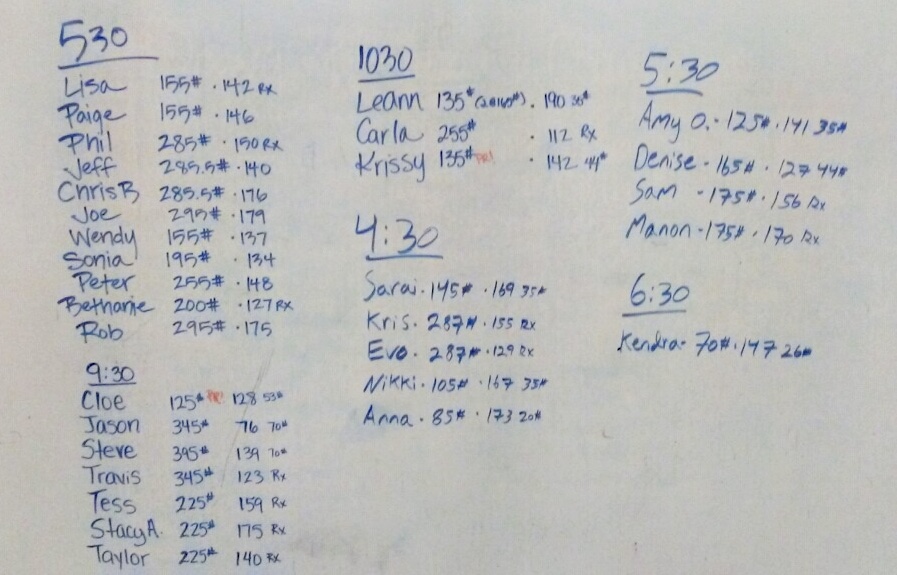 530
Lisa 155# · 142 Rx
Paige 155# · 146
Phil 285# · 150 Rx
Jeff 285.5# · 140
Chris B 285.5# · 176
Joe 295# · 179
Wendy 155# · 137
Sonia 195# · 134
Peter 255# · 148
Bethanie 200# · 127 Rx
Rob 295# · 175
9:30
Cloe 125# PR! 128 53#
Jason 345# 76 70#
Steve 395# 139 70#
Travis 345# 123 Rx
Tess 225# 159 Rx
Stacy A. 225# 175 Rx
Taylor 225# 140 Rx
1030
Leann 135# · 190
Carla 255# · 112 Rx
Krissy 135# PR! · 142 44#
4:30
Sarai · 145# · 169 35#
Kris · 287# · 155 Rx
Evo · 287# · 129 Rx
Nikki · 105# · 167 35#
Anna · 85# · 173 20#
5:30
Amy O. - 125# · 141 35#
Denise - 165# · 127 44#
Sam - 175# · 156 Rx
Manon - 175# · 170 Rx
6:30
Kendra - 70# · 147 26#